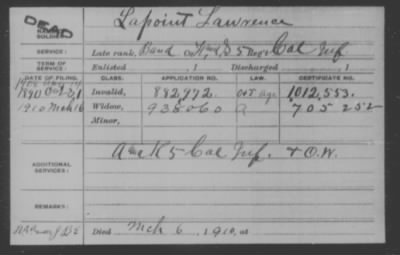 DEAD
NAME OF SOLDIER: Lapoint Lawrence
SERVICE: Late rank, Band Co. & 5 Reg't Cal Inf
TERM OF SERVICE: Enlisted , 1 Discharged , 1
DATE OF FILING. CLASS. APPLICATION NO. LAW. CERTIFICATE NO.
1890 Oct 21 Invalid, 882,772. Oct age 1,012,553.
1910 Mch 16 Widow, 938060 a 705252
Minor,
ADDITIONAL SERVICES: K 5 Cal Inf. & O.W.
REMARKS:
Died Mch 6, 1910, at